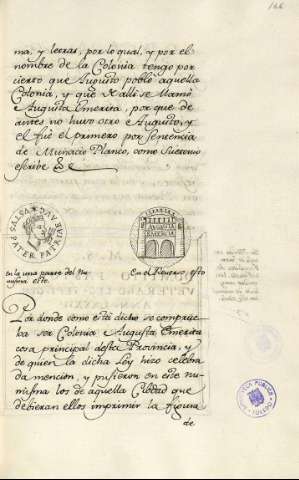 ma, y letras, por lo qual, y por el
nombre de la Colonia tengo por
cierto que Augusto poblo aquella
Colonia, y que de alli se llamò
Augusta Emerita, porque de
antes no huvo otro Augusto, y
el fuè el primero por sentencia
de Munacio Planco, como Suetonio
escribe &c
PATER PATRIAE
AUGUSTA
EMERITA
en la una parte del Nu-
misma este.
En el Reverso, esto
Por donde como està dicho se comprue-
ba ser Colonia Augusta Emerita
cosa principal desta Provincia, y
de quien la dicha Ley hizo celebra-
da mencion, y pusieron en este nu-
misma los de aquella Ciudad que
debieran ellos imprimir la figura
de